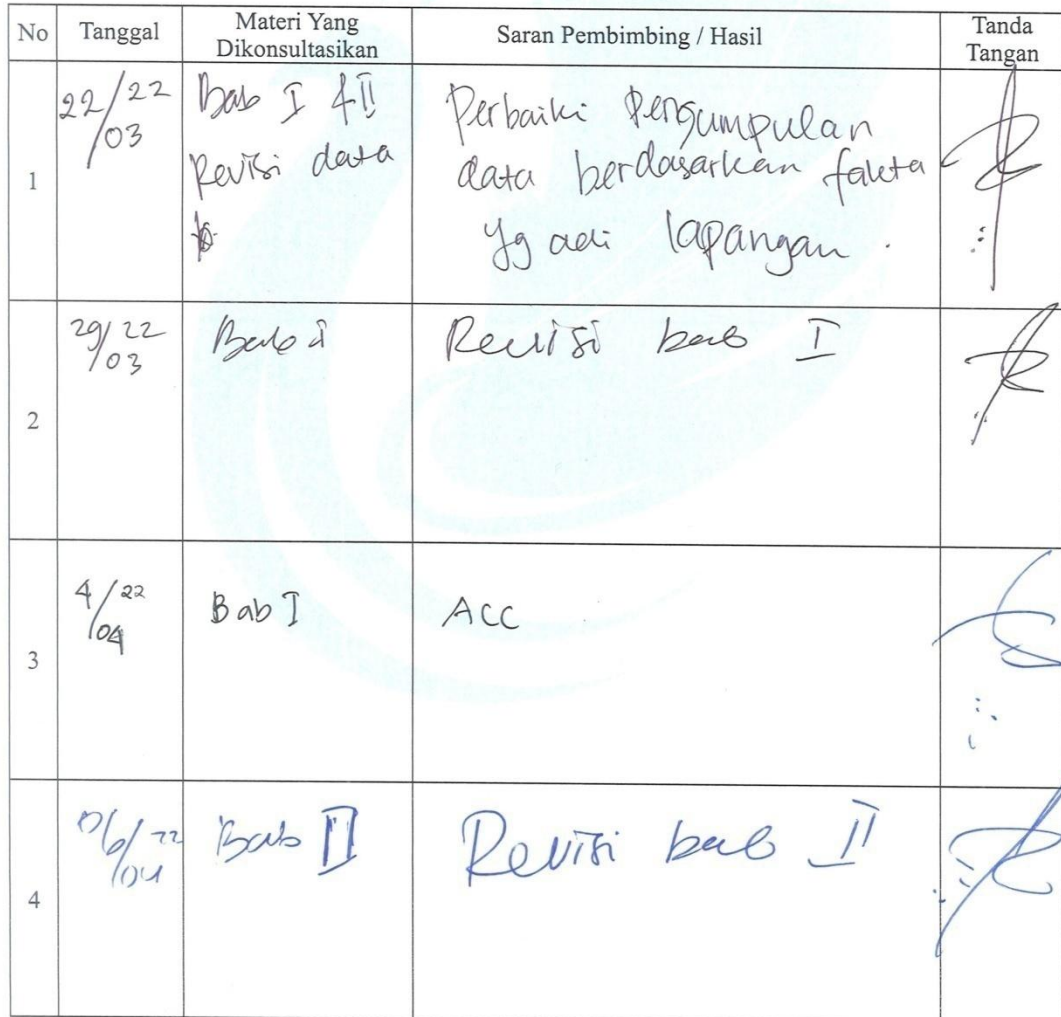 No Tanggal Materi Yang Dikonsultasikan Saran Pembimbing / Hasil Tanda Tangan
1
22/22
03
Bab I & II
Revisi data
Perbaiki Pengumpulan
data berdasarkan fakta
yg adi lapangan.
2
29/22
03
Bab I
Revisi bab I
3
4/22
04
Bab I
ACC
4
06/22
04
Bab II
Revisi bab II